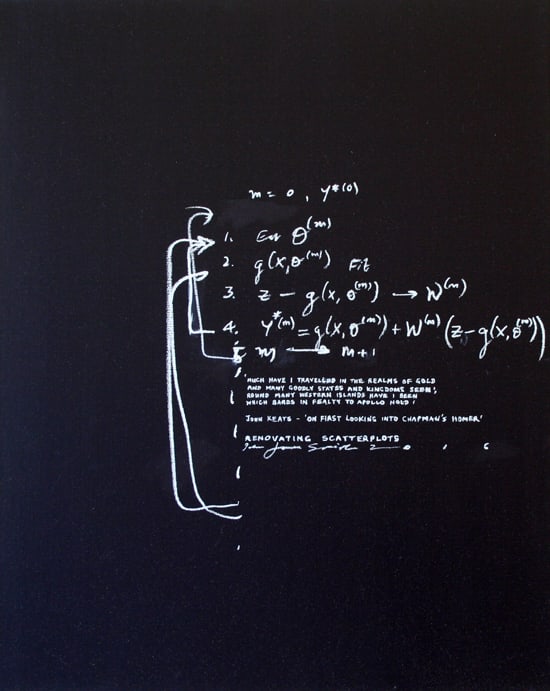 m = 0 , y*(0)
1. Est θ^(m)
2. g(x, θ^(m)) Fit
3. z − g(x, θ^(m)) → W^(m)
4. y*^(m) = g(x, θ^(m)) + W^(m) (z − g(x, θ^(m)))
5. m → m+1
MUCH HAVE I TRAVELLED IN THE REALMS OF GOLD
AND MANY GOODLY STATES AND KINGDOMS SEEN;
ROUND MANY WESTERN ISLANDS HAVE I BEEN
WHICH BARDS IN FEALTY TO APOLLO HOLD!
JOHN KEATS - 'ON FIRST LOOKING INTO CHAPMAN'S HOMER'
RENOVATING SCATTERPLOTS
2 0 1 6